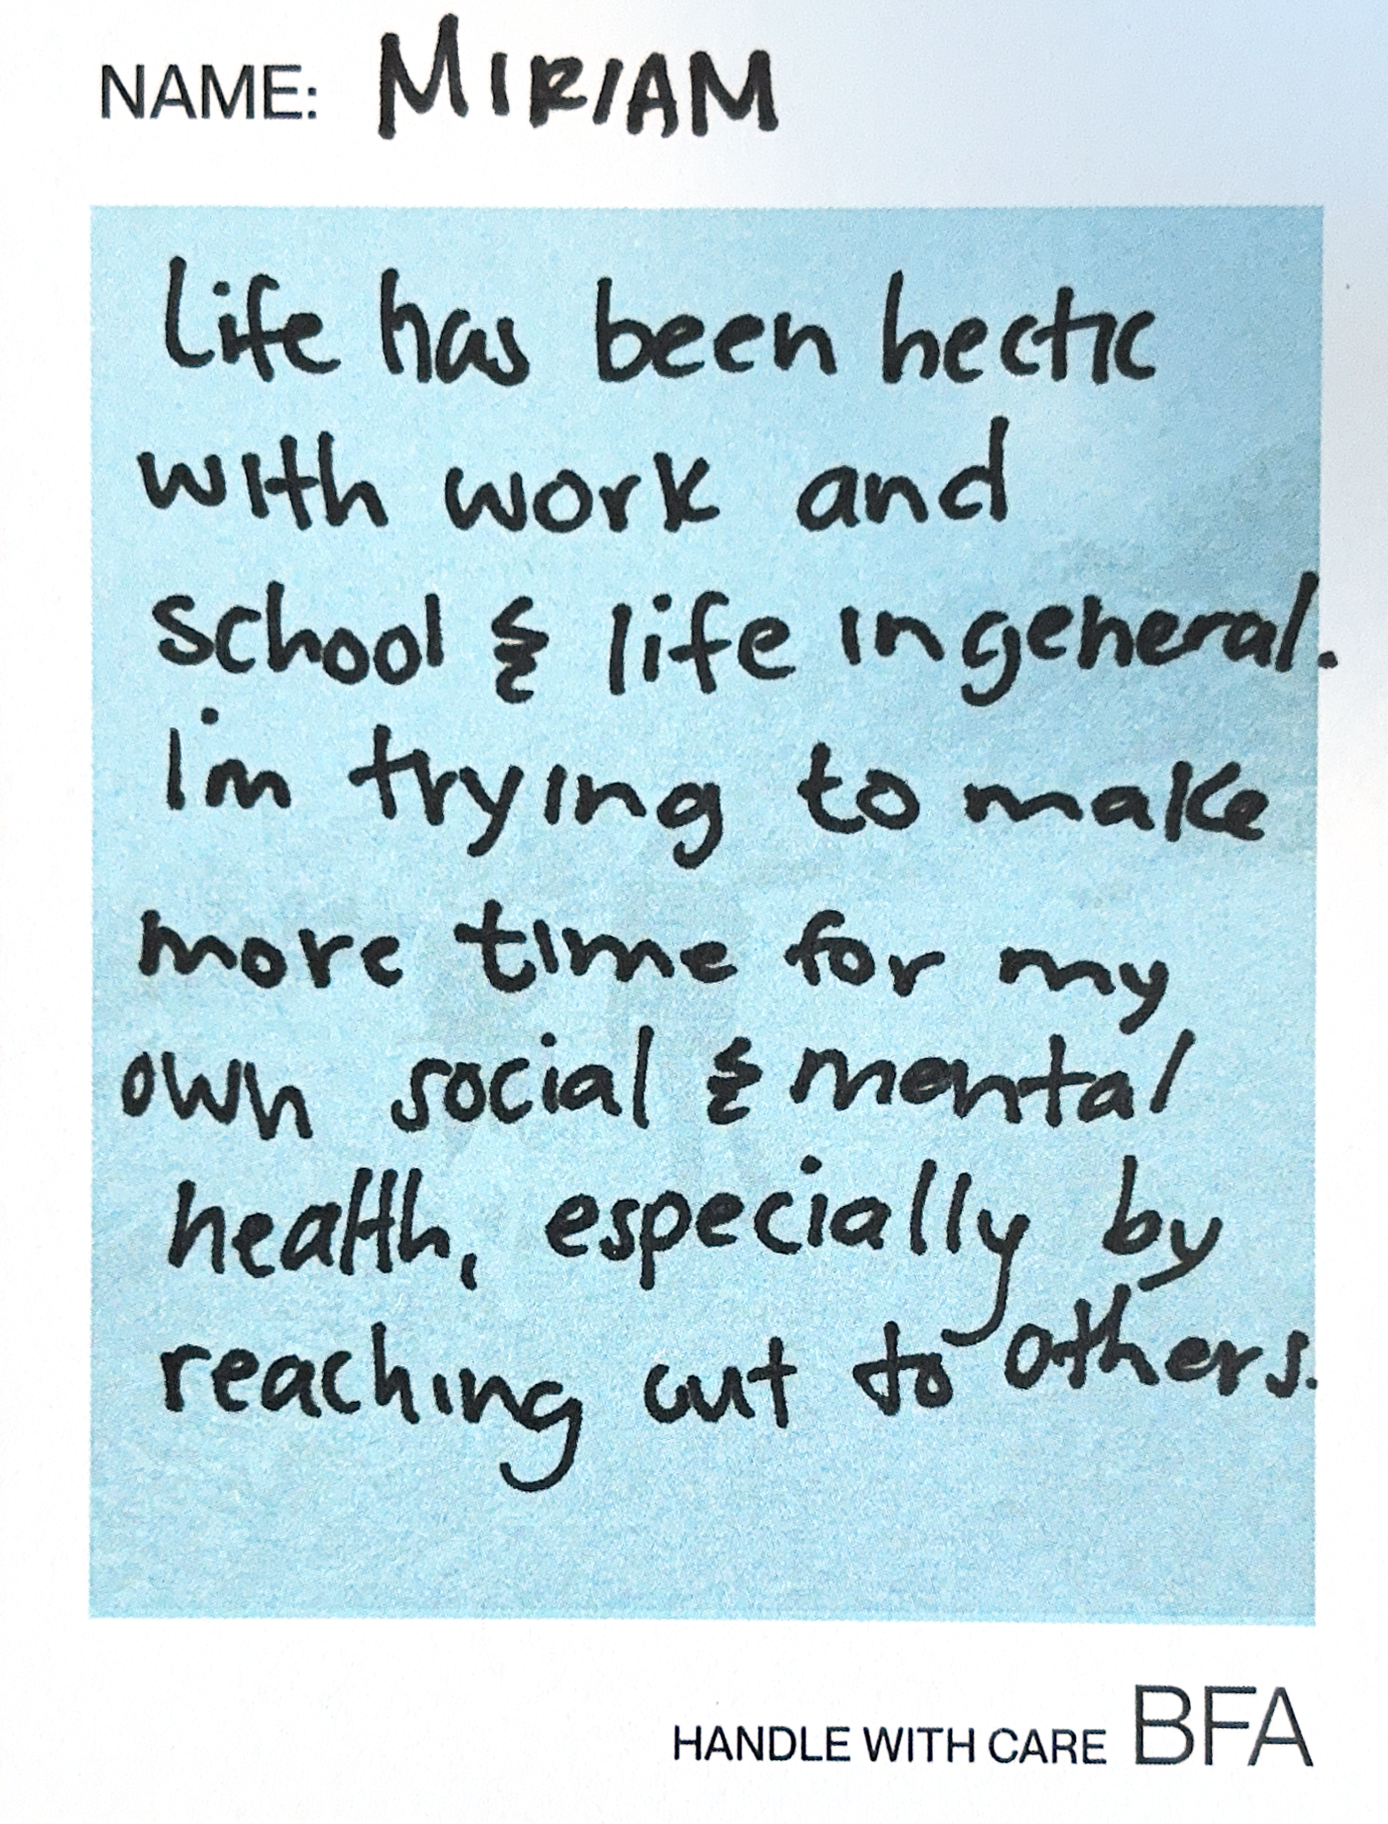 NAME: MIRIAM
Life has been hectic
with work and
school & life in general.
I'm trying to make
more time for my
own social & mental
health, especially by
reaching out to others.
HANDLE WITH CARE BFA